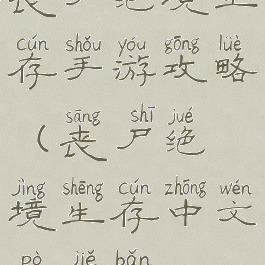 cún shǒu yóu gōng lüè
存手游攻略
sāng shī jué
(丧尸绝
jìng shēng cún zhōng wén
境生存中文
pò jiě bǎn